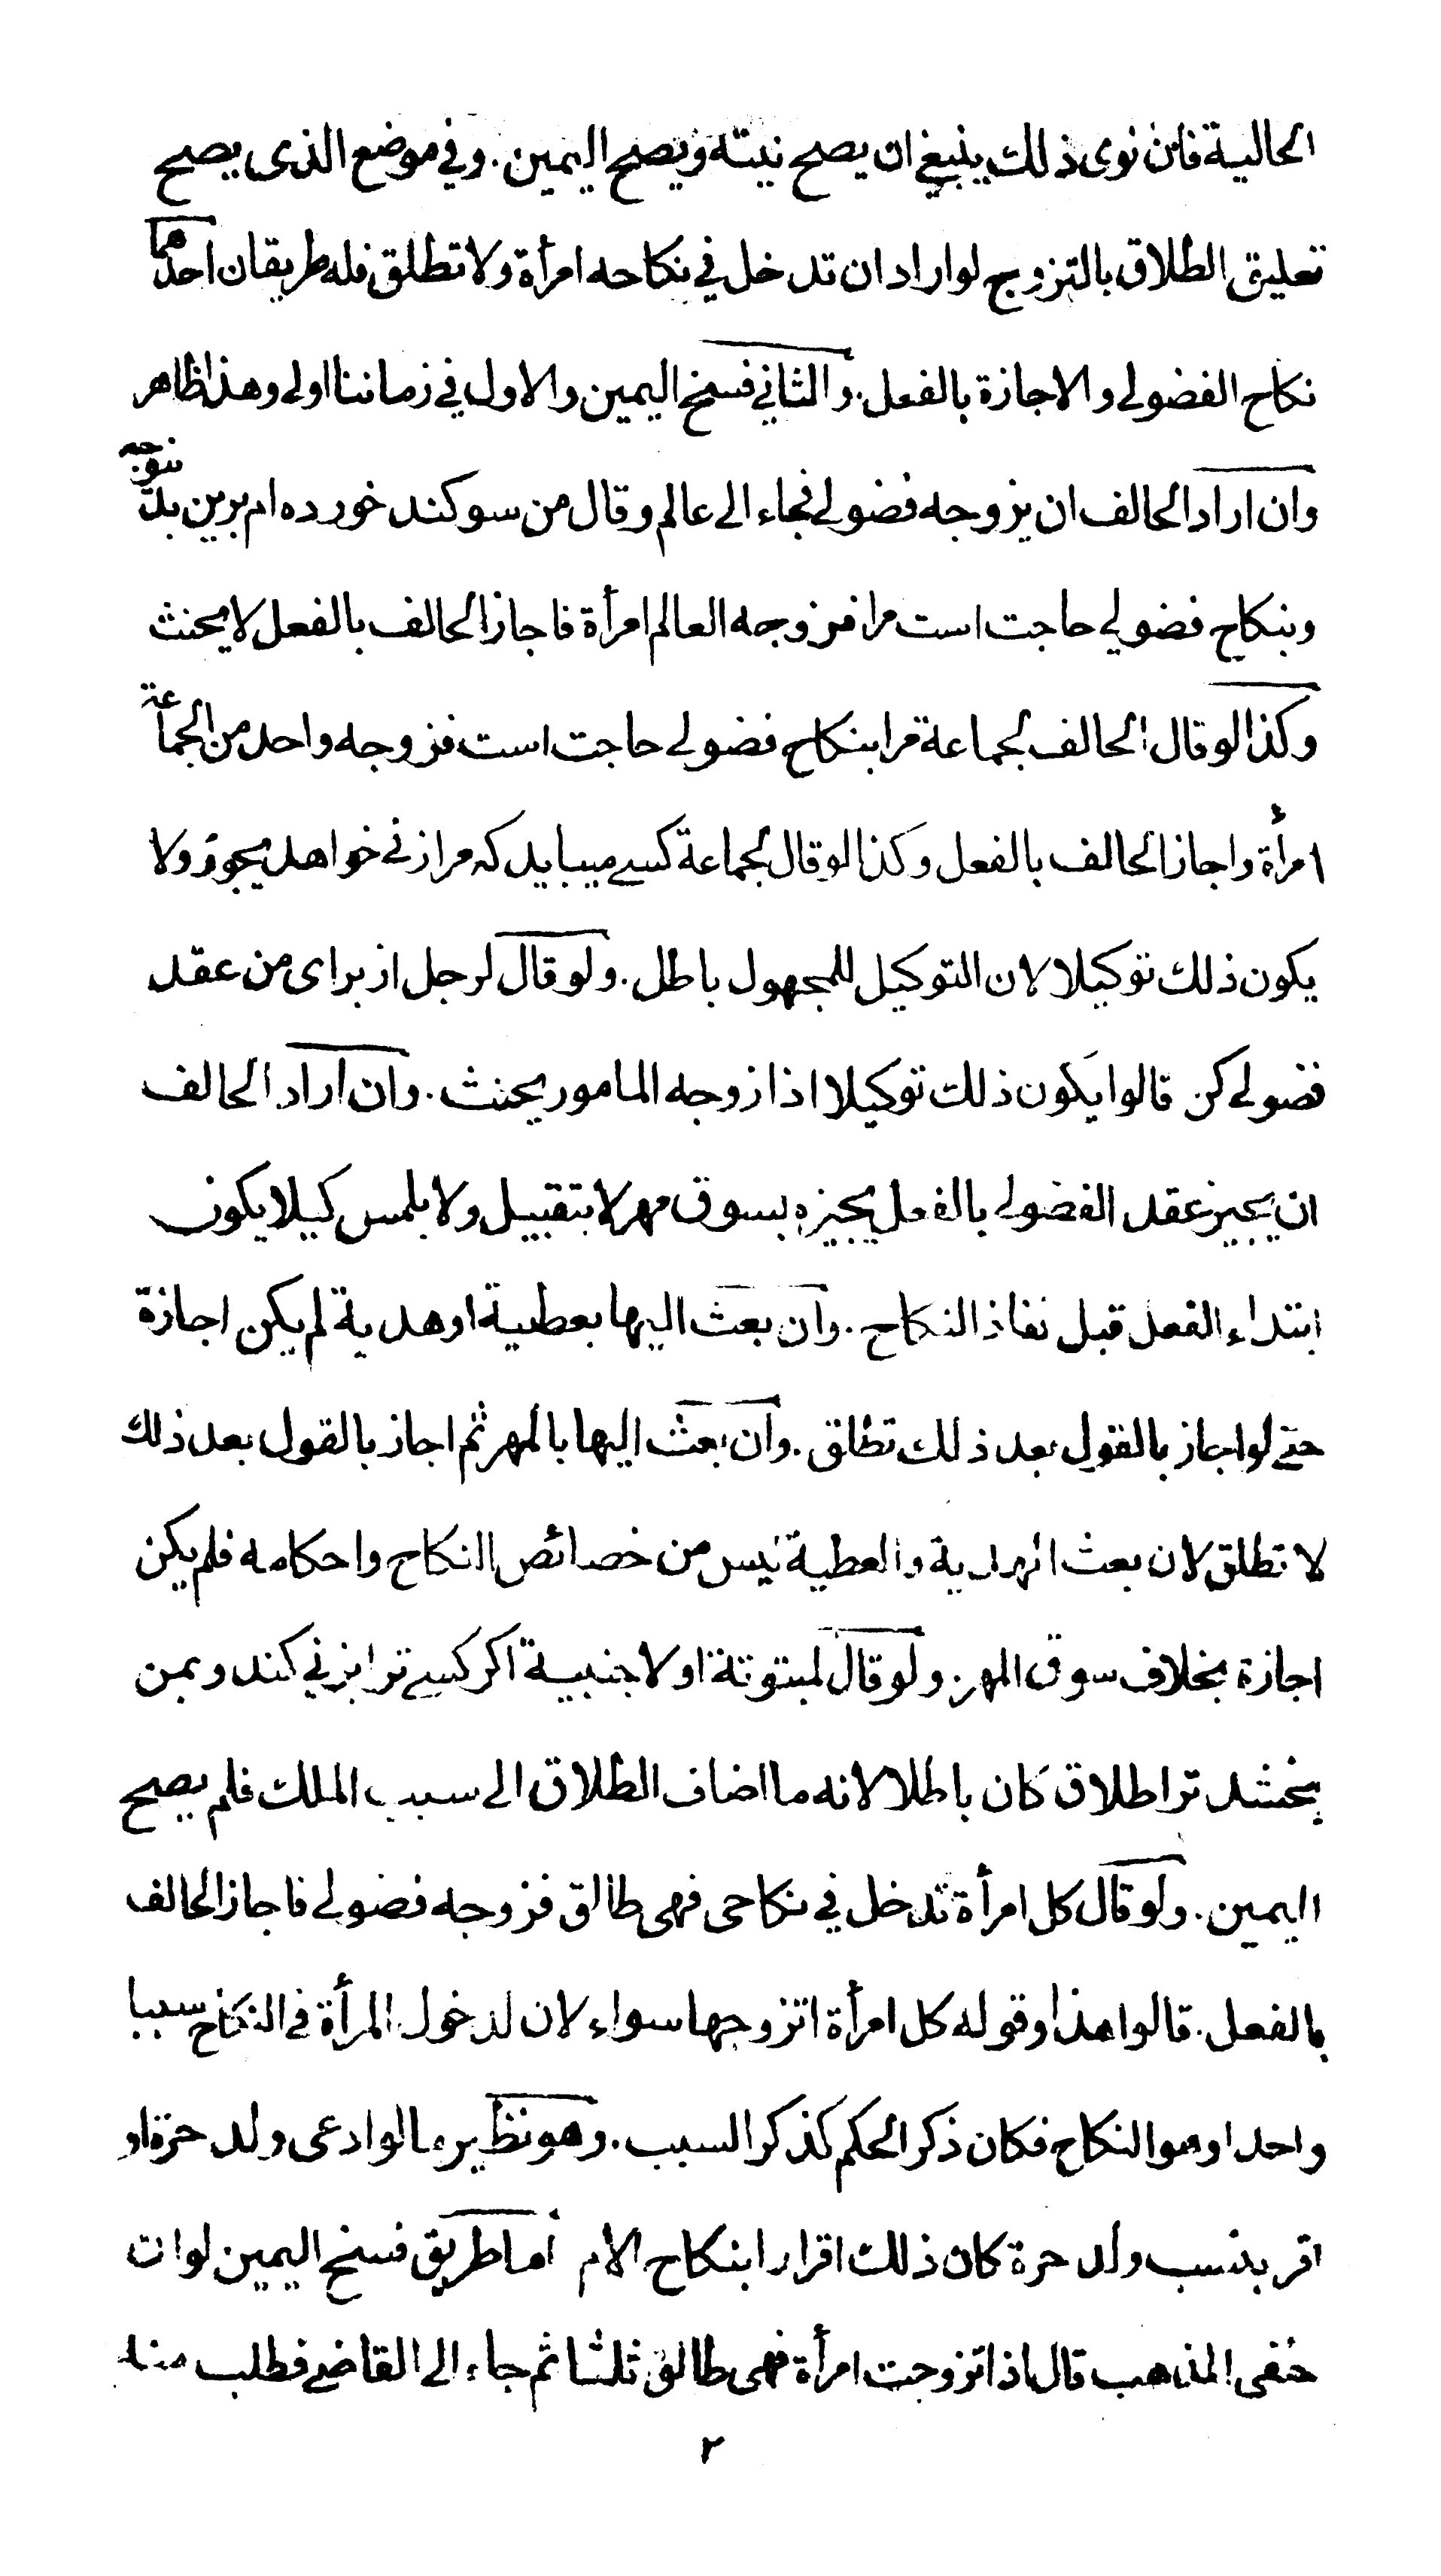 الحالية فان نوى ذلك ينبغي ان يصح نيته ويصح اليمين. وفي موضع الذى يصح
تعليق الطلاق بالتزوج لو اراد ان تدخل في نكاحه امرأة ولا تطلق فله طريقان احدهما
نكاح الفضولي والاجازة بالفعل. والثاني فسخ اليمين والاول في زماننا اولى وهذا ظاهر
وان اراد الحالف ان يزوجه فضولي فجاء الى عالم وقال من سوكند خورده ام برين
وبنكاح فضولي حاجت است مرا فزوجه العالم امرأة فاجاز الحالف بالفعل لا يحنث
وكذا لو قال الحالف لجماعة مرا بنكاح فضولي حاجت است فزوجه واحد من الجماعة
امرأة واجاز الحالف بالفعل وكذا لو قال لجماعة كسے ميبايد كه مرا زنے خواهد يجوز ولا
يكون ذلك توكيلا لان التوكيل للمجهول باطل. ولو قال لرجل از براى من عقد
فضولي كن قالوا يكون ذلك توكيلا اذا زوجه المامور يحنث. وان اراد الحالف
ان يجيز عقد الفضولي بالفعل يجيزه بسوق مهر لا بتقبيل ولا بلمس كيلا يكون
ابتداء الفعل قبل نفاذ النكاح. وان بعث اليها بعطية او هدية لم يكن اجازة
حتى لو اجاز بالقول بعد ذلك تطلق. وان بعث اليها بالمهر ثم اجاز بالقول بعد ذلك
لا تطلق لان بعث الهدية والعطية ليس من خصائص النكاح واحكامه فلم يكن
اجازة بخلاف سوق المهر. ولو قال لمبتوتة او لاجنبية اكر كسے ترا بزني كند وبمن
بخشد ترا طلاق كان باطلا لانه ما اضاف الطلاق الى سبب الملك فلم يصح
اليمين. ولو قال كل امرأة تدخل في نكاحى فهى طالق فزوجه فضولي فاجاز الحالف
بالفعل. قالوا هذا وقوله كل امرأة اتزوجها سواء لان لدخول المرأة في النكاح سببا
واحدا وهو النكاح فكان ذكر الحكم كذكر السبب. وهو نظير ما لو ادعى ولد حرة او
اقر بنسب ولد حرة كان ذلك اقرارا بنكاح الام اما طريق فسخ اليمين لو ان
حنفى المذهب قال اذا تزوجت امرأة فهى طالق ثلثا ثم جاء الى القاضے فطلب منه
٢